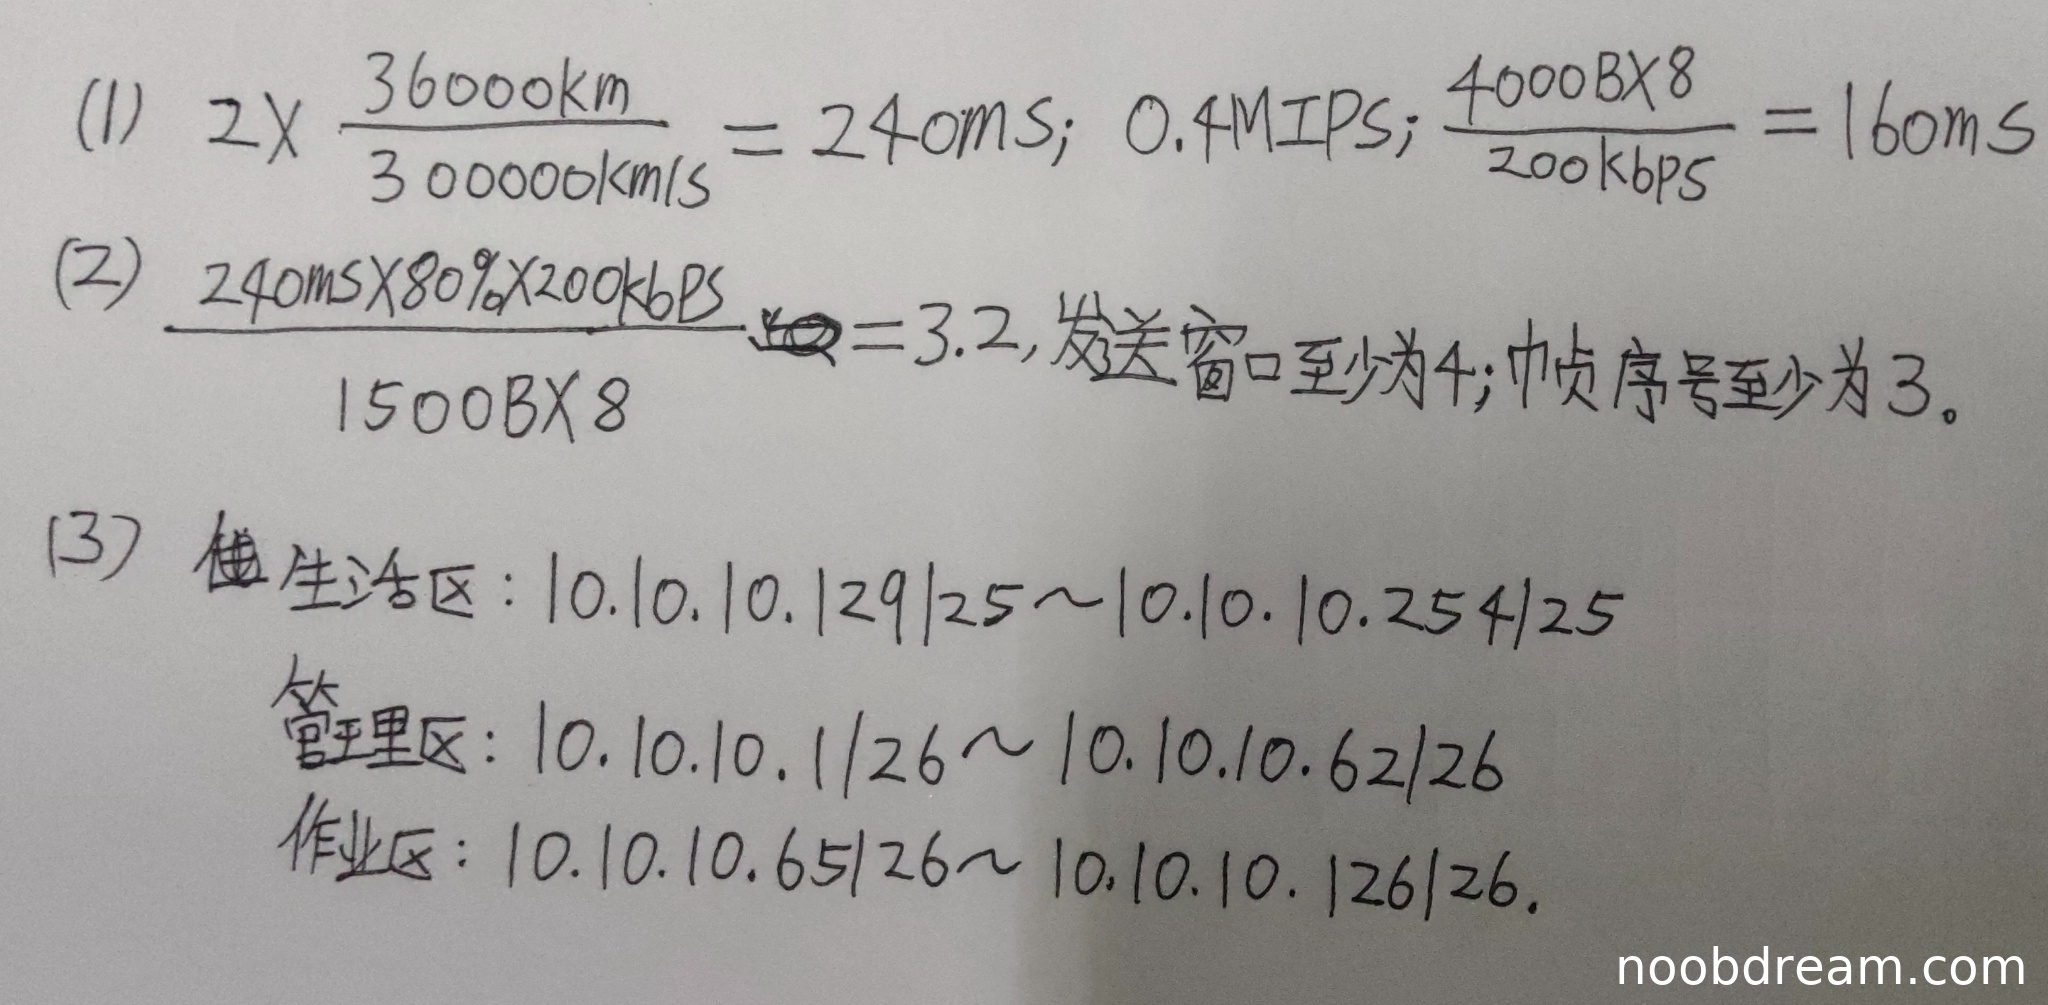 (1) 2X 36000km/300000km/s = 240ms; 0.4MIPS; 4000BX8/200kbps = 160ms
(2) 240msX80%X200kbps/1500BX8 = 3.2, 发送窗口至少为4; 帧序号至少为3。
(3) 生活区: 10.10.10.129/25~10.10.10.254/25
管理区: 10.10.10.1/26~10.10.10.62/26
作业区: 10.10.10.65/26~10.10.10.126/26.
noobdream.com